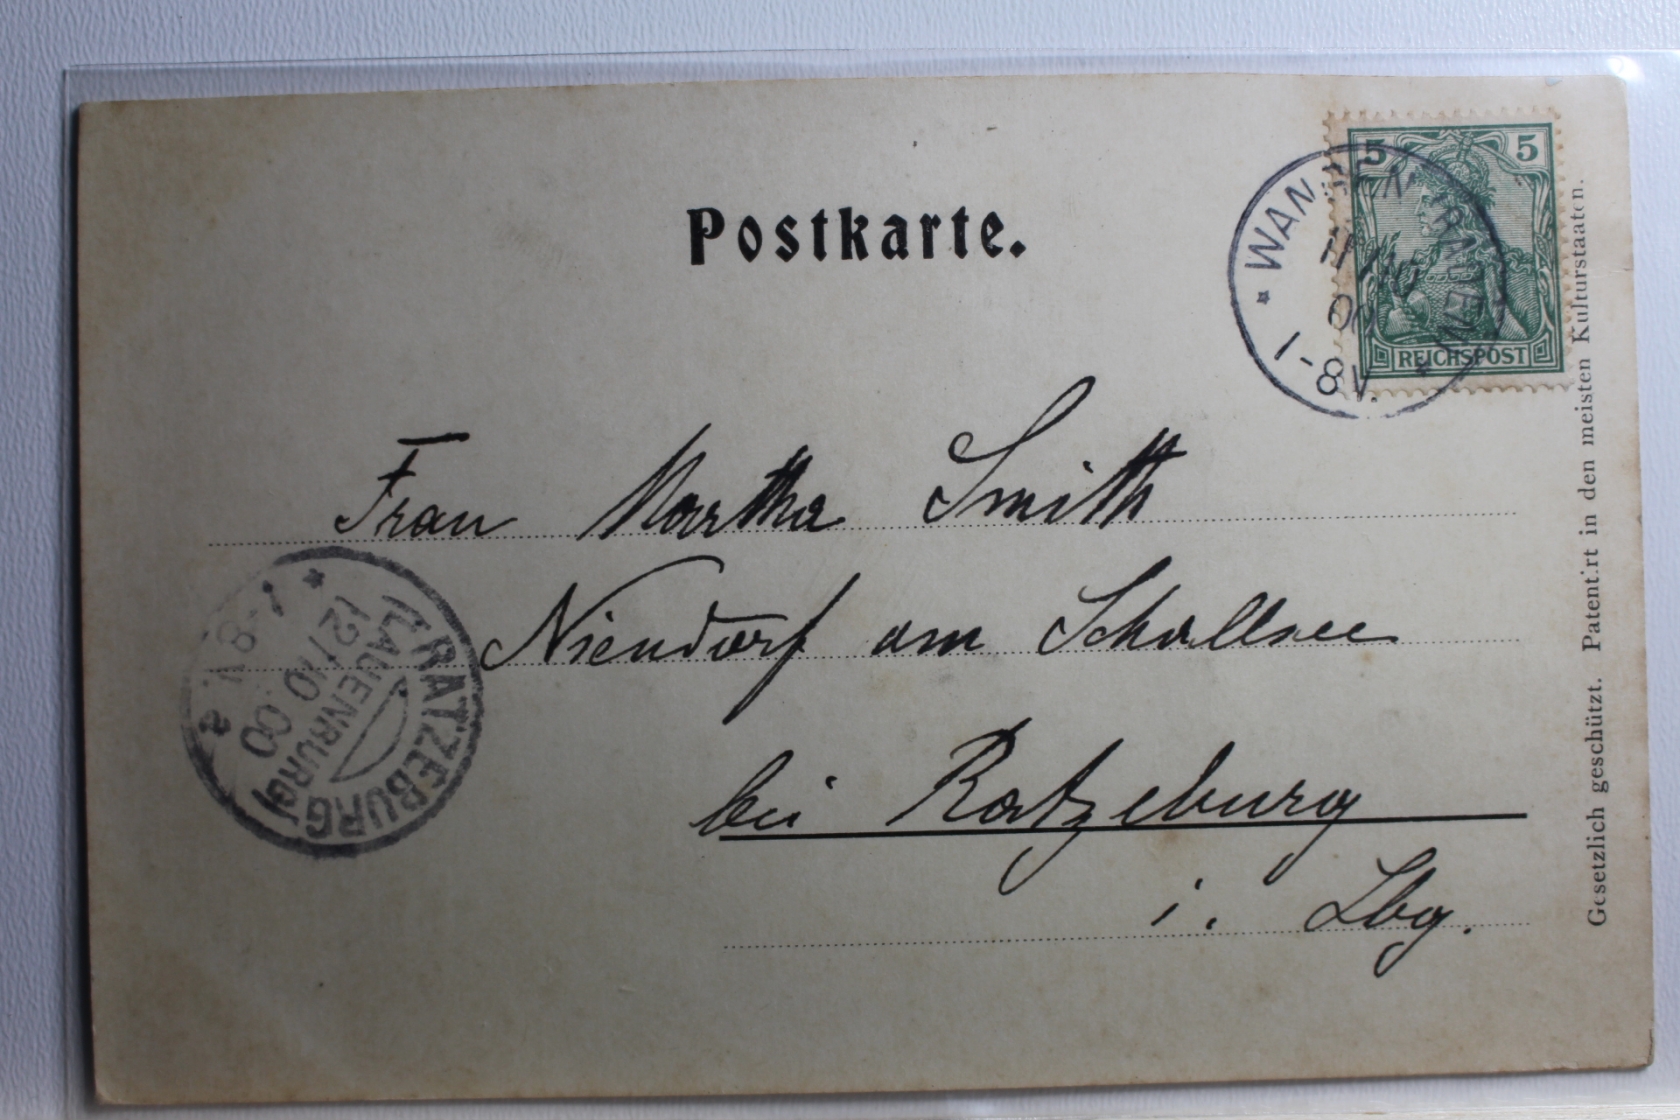 Postkarte.
5 5
REICHSPOST
11/10
00
1-8V.
Frau Martha Smith
Niendorf am Schallsee
bei Ratzeburg
i. Lbg.
RATZEBURG
(LAUENBURG)
12/10 00
7-8V.
a
Gesetzlich geschützt. Patentirt in den meisten Kulturstaaten.